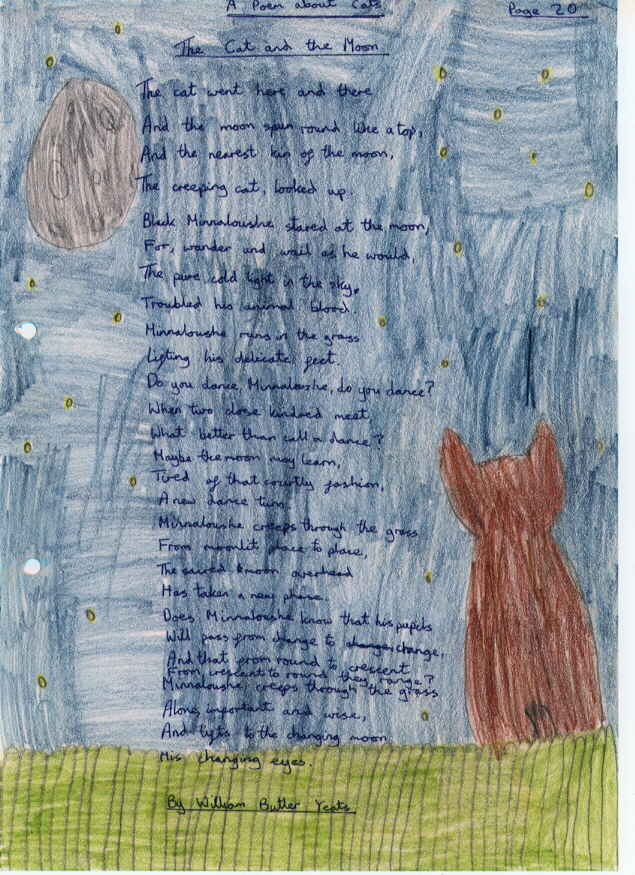 A Poem about Cats
Page 20
The Cat and the Moon
The cat went here and there
And the moon spun round like a top,
And the nearest kin of the moon,
The creeping cat, looked up.
Black Minnaloushe stared at the moon,
For, wander and wail as he would,
The pure cold light in the sky,
Troubled his animal blood.
Minnaloushe runs in the grass
Lifting his delicate feet.
Do you dance, Minnaloushe, do you dance?
When two close kindred meet
What better than call a dance?
Maybe the moon may learn,
Tired of that courtly fashion,
A new dance turn
Minnaloushe creeps through the grass
From moonlit place to place,
The sacred moon overhead
Has taken a new phase.
Does Minnaloushe know that his pupils
Will pass from change to change,
And that from round to crescent
From crescent to round they range?
Minnaloushe creeps through the grass
Alone, important and wise,
And lifts to the changing moon
His changing eyes.
By William Butler Yeats